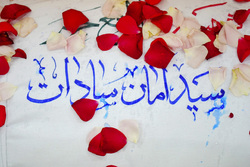 سیدامان سادات